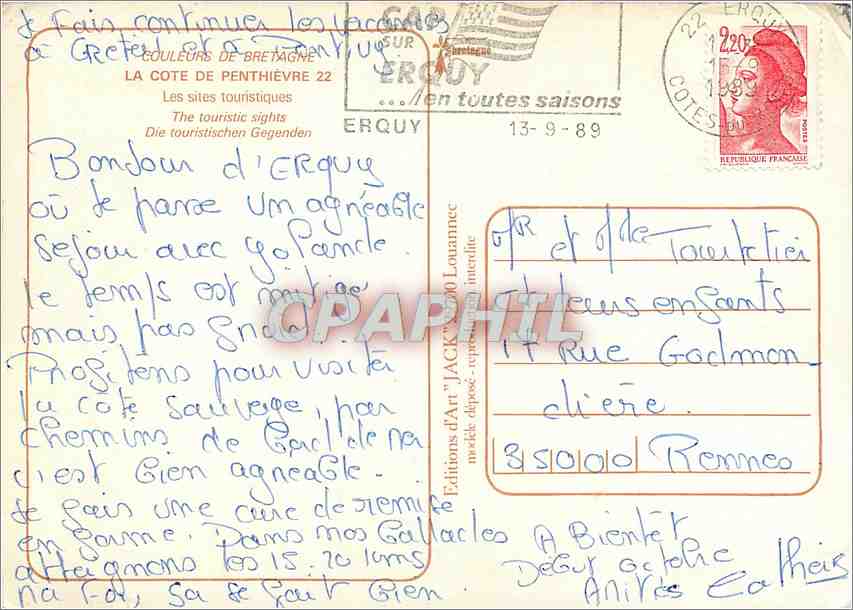 Je fais continuer les vacances
à Créteil et à
COULEURS DE BRETAGNE
LA COTE DE PENTHIÈVRE 22
Les sites touristiques
The touristic sights
Die touristischen Gegenden
CAP
SUR
ERQUY
Bretagne
...en toutes saisons
ERQUY 13-9-89
22 ERQUY
1989
COTES-DU-
2,20
POSTES
REPUBLIQUE FRANÇAISE
Bonjour d'ERQUY
où je passe un agréable
séjour avec Yolande.
le temps est mitigé
mais pas froid
Profitons pour visiter
la côte sauvage, par
chemins de bord de mer
c'est bien agréable.
Je fais une cure de remise
en forme. Dans nos ballades
attaignons les 15. 20 kms
ma foi, sa se fait bien
A Bientôt
Début octobre
Amitiés
Editions d'Art "JACK" Louannec
modèle déposé - reproduction interdite
CPAPHIL
Mr et Mme
et leurs enfants
17 Rue Godmon-
dière.
35000 Rennes